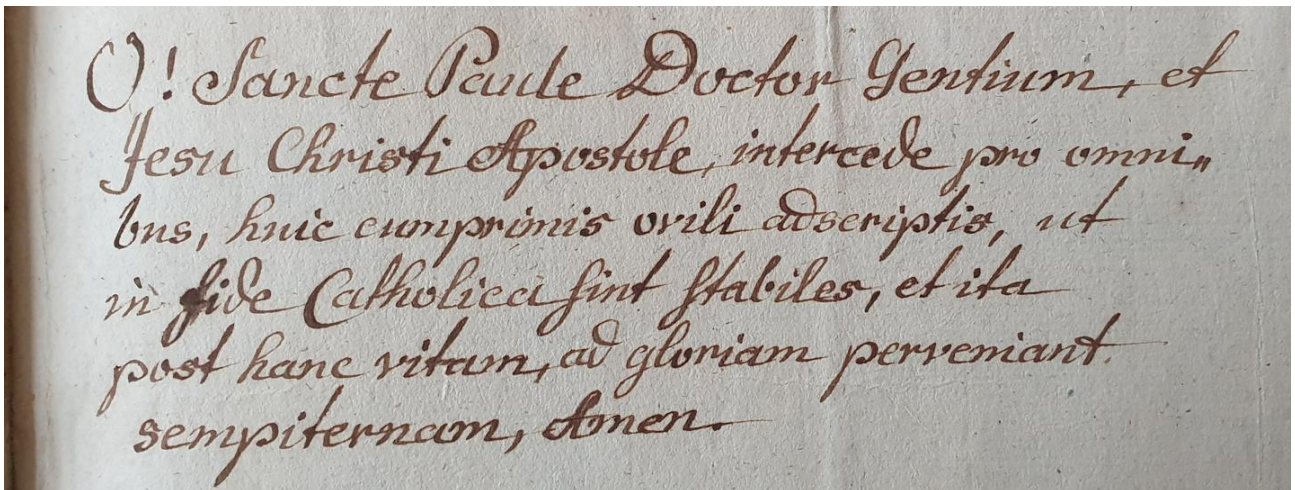 O! Sancte Paule Doctor Gentium, et
Jesu Christi Apostole, intercede pro omni„
bus, huic cumprimis ovili adscriptis, ut
in fide Catholica sint stabiles, et ita
post hanc vitam, ad gloriam perveniant
sempiternam, Amen.